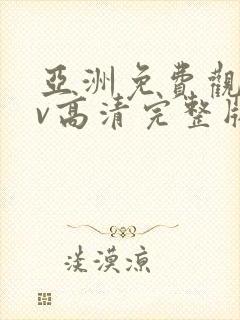 亞洲免費觀
v高清完整版
淡漠涼